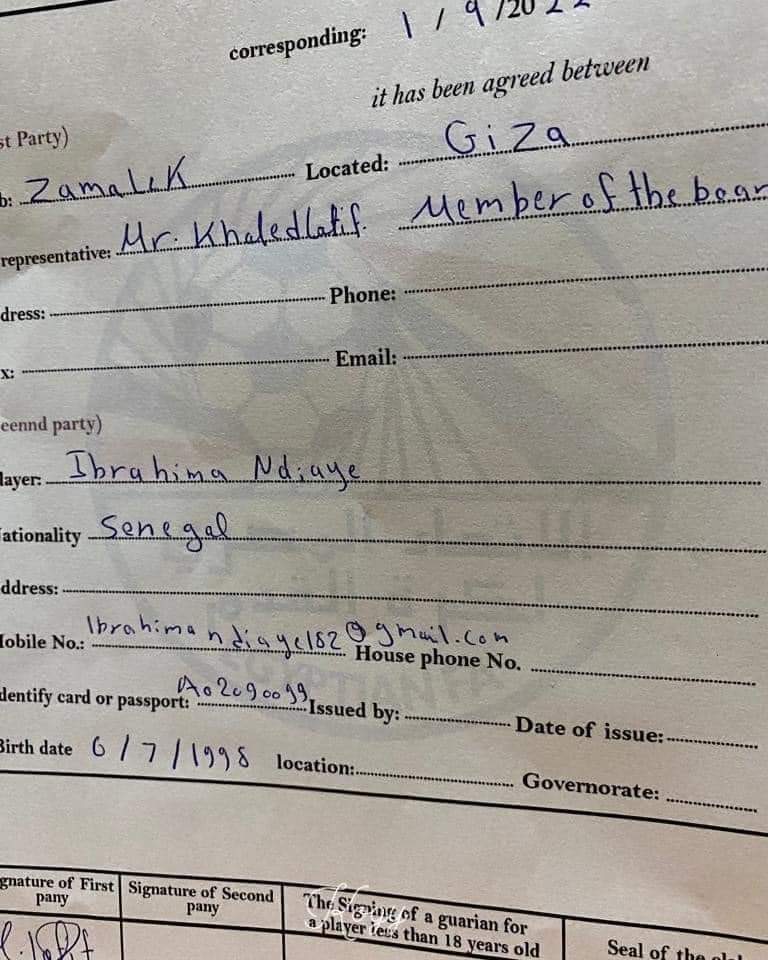 corresponding: 1 / 9 /2022
it has been agreed between
st Party)
b: Zamalek Located: Giza
representative: Mr. Khaledlatif. Member of the boar
dress: Phone:
x: Email:
eennd party)
layer: Ibrahima Ndiaye
ationality Senegal
ddress:
Mobile No.: Ibrahima ndiaye182@gmail.com House phone No.
dentify card or passport: A02090099 Issued by: Date of issue:
Birth date 6/7/1998 location: Governorate:
الاتحاد المصري
لكرة القدم
EGYPTIAN FA
gnature of First pany
Signature of Second pany
The Signing of a guarian for a player less than 18 years old
Seal of the clu